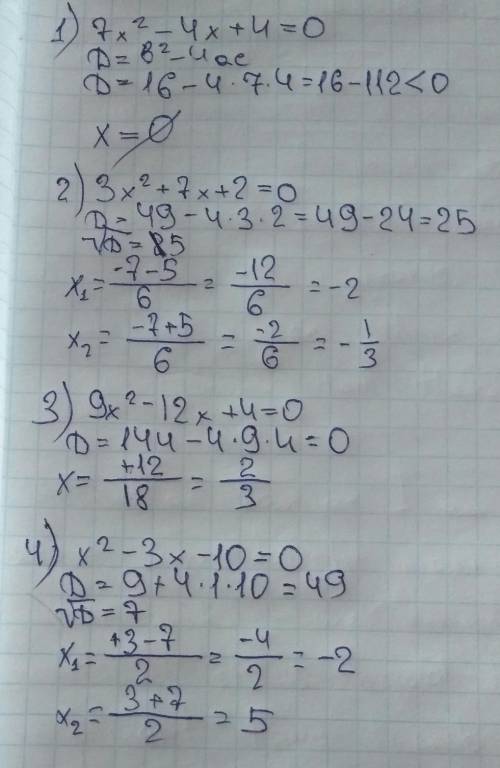 1) 7x² - 4x + 4 = 0
D = в² - 4ac
D = 16 - 4·7·4 = 16 - 112 < 0
x = ∅
2) 3x² + 7x + 2 = 0
D = 49 - 4·3·2 = 49 - 24 = 25
√D = 5
x₁ = (-7-5)/6 = -12/6 = -2
x₂ = (-7+5)/6 = -2/6 = -1/3
3) 9x² - 12x + 4 = 0
D = 144 - 4·9·4 = 0
x = +12/18 = 2/3
4) x² - 3x - 10 = 0
D = 9 + 4·1·10 = 49
√D = 7
x₁ = (+3-7)/2 = -4/2 = -2
x₂ = (3+7)/2 = 5